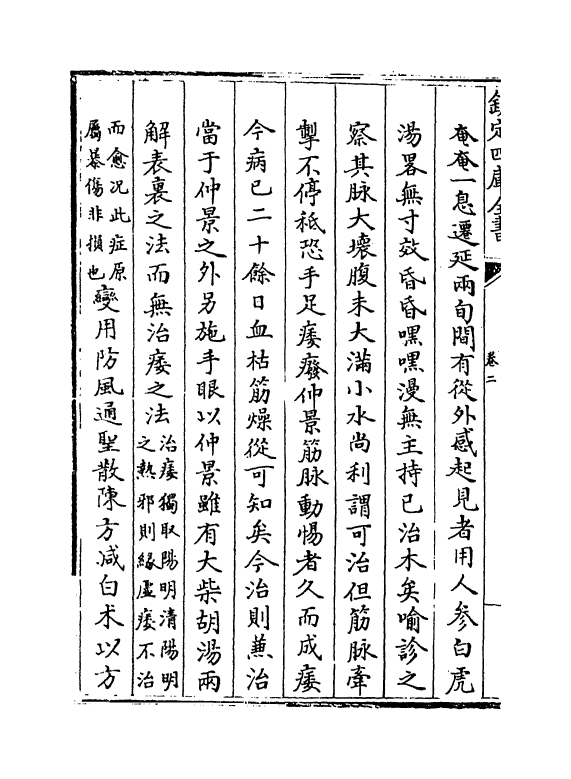 欽定四庫全書
卷二
奄奄一息遷延兩旬間有從外感起見者用人參白虎
湯畧無寸效昏昏嘿嘿漫無主持已治木矣喻診之
察其脉大壞腹未大滿小水尚利謂可治但筋脉牽
掣不停秪恐手足痿癈仲景筋脉動惕者久而成痿
今病已二十餘日血枯筋燥從可知矣今治則兼治
當于仲景之外另施手眼以仲景雖有大柴胡湯兩
解表裏之法而無治痿之法治痿獨取陽明清陽明
之熱邪則緣虛痿不治
而愈况此症原
屬暴傷非損也變用防風通聖散陳方减白术以方